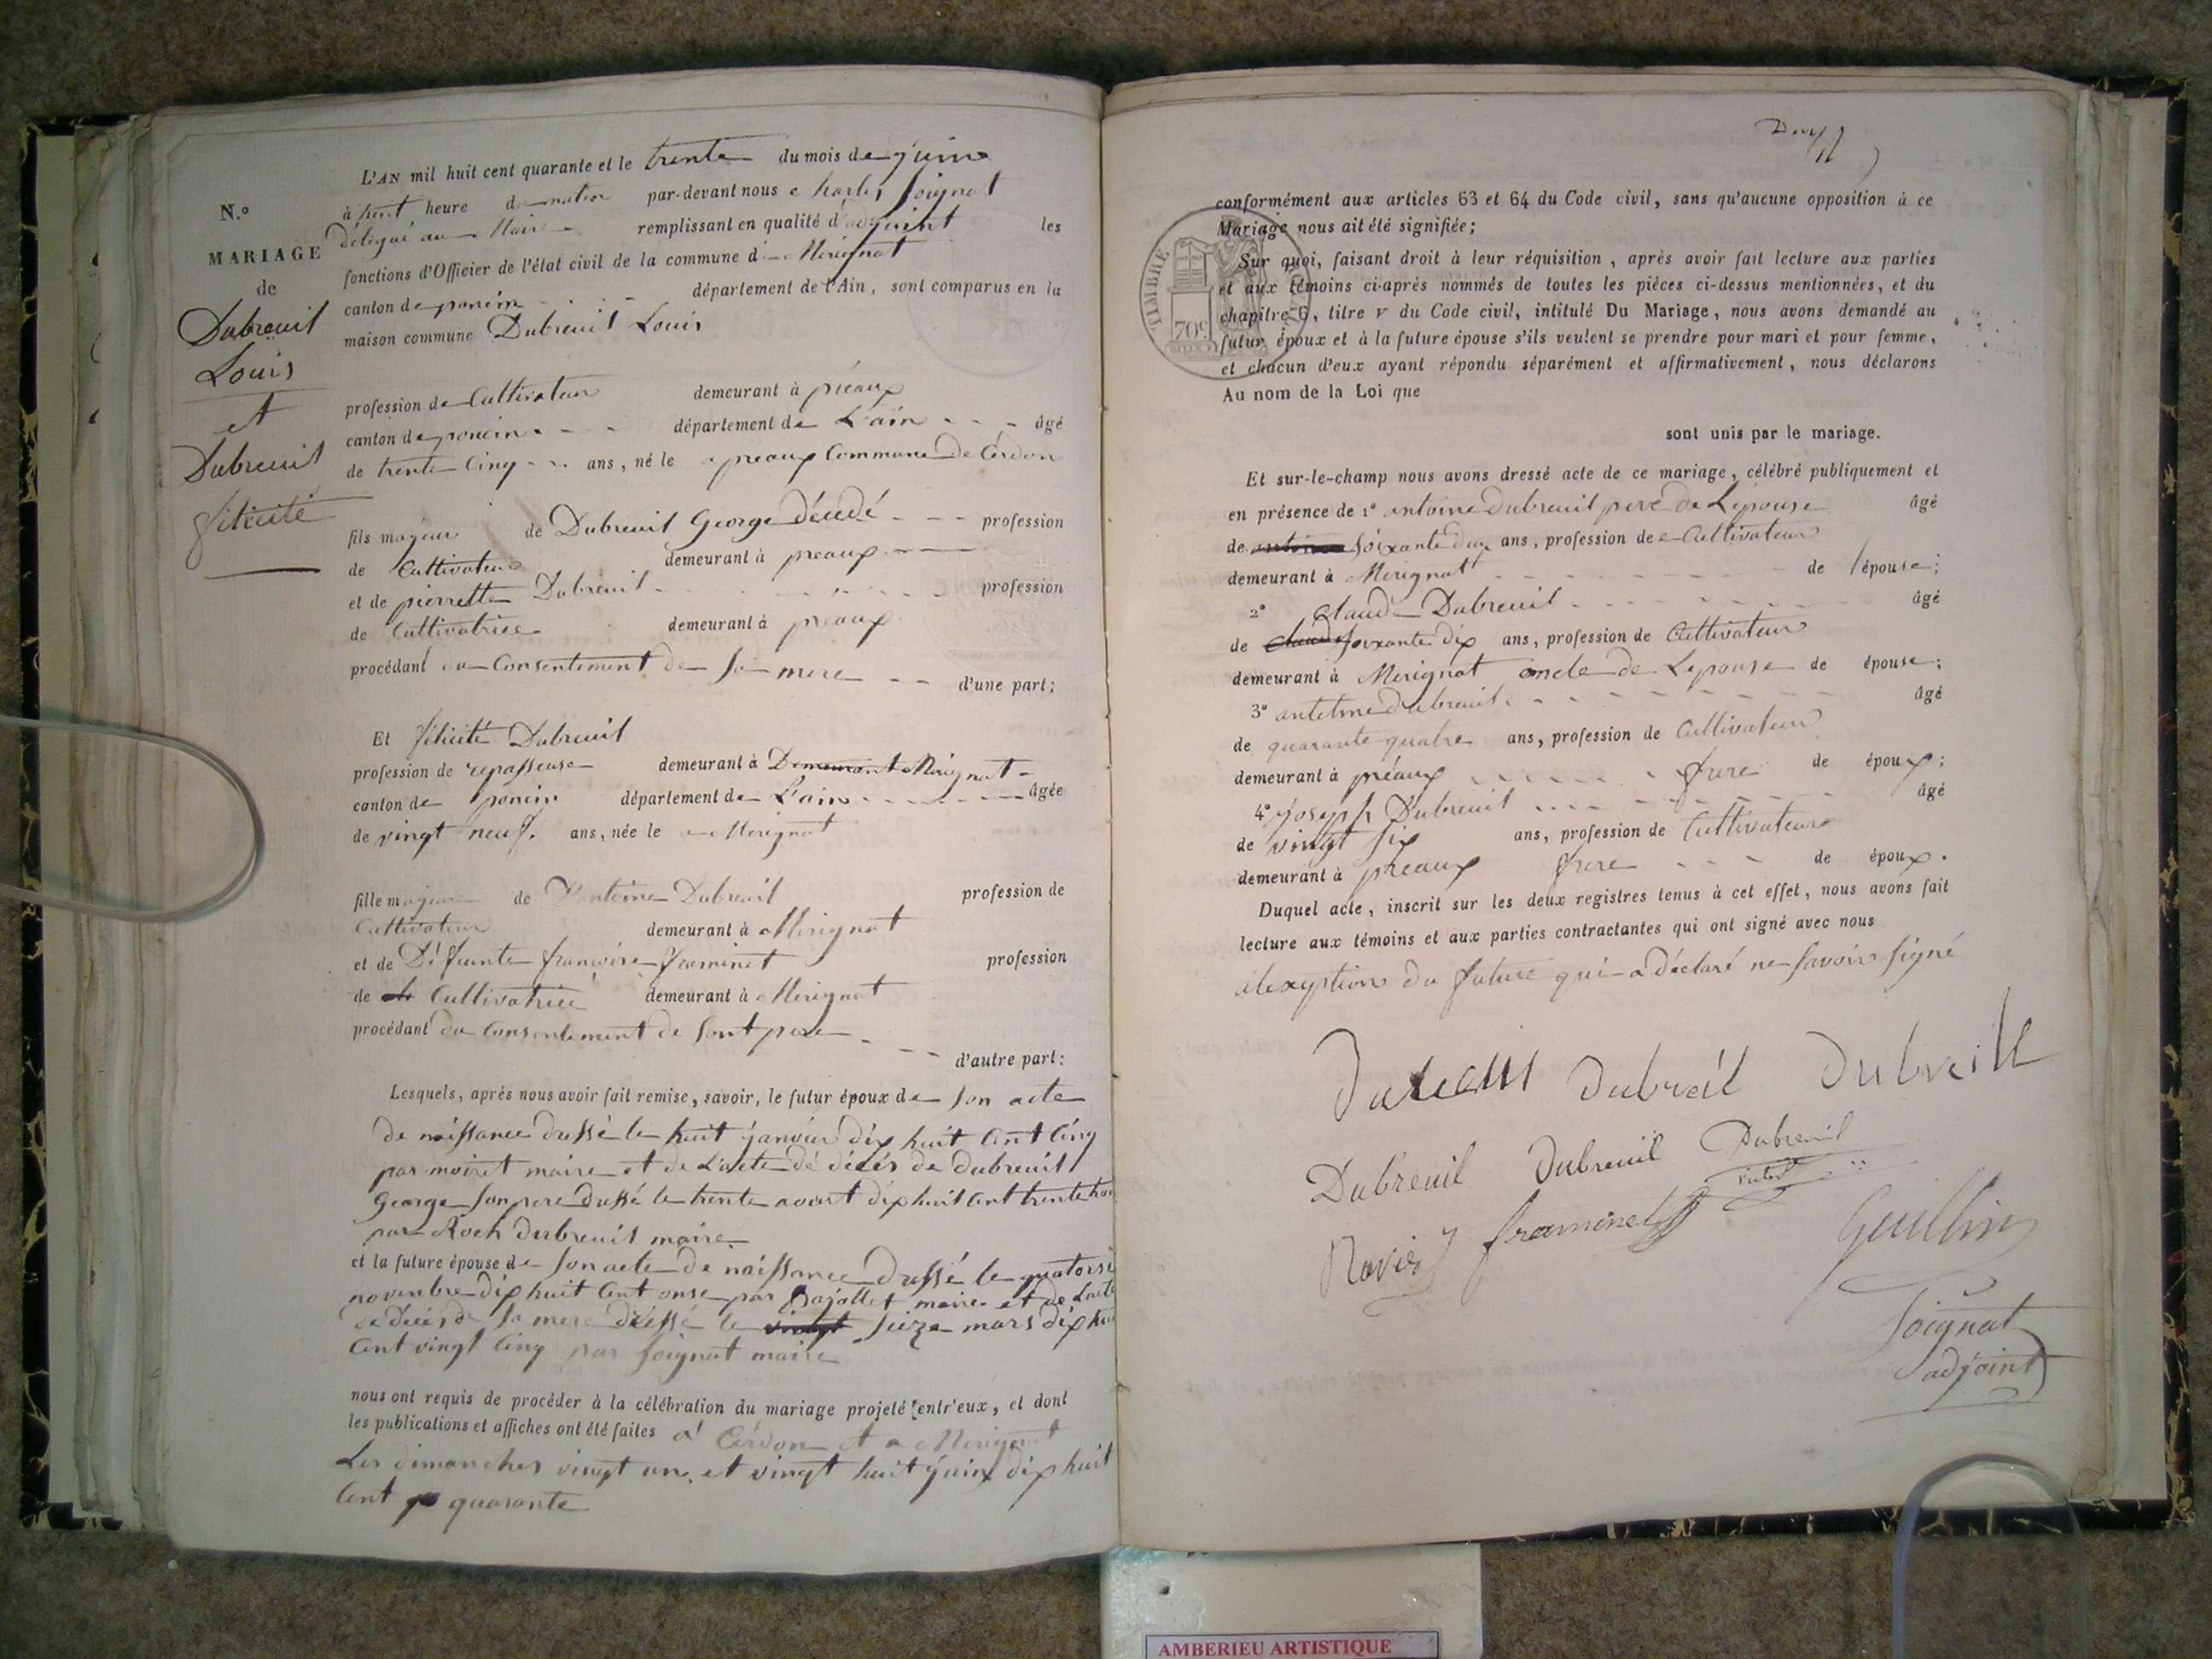 N.°
MARIAGE
de
Dubreuil
Louis
et
Dubreuil
félicité
L'AN mil huit cent quarante et le trente du mois de juin
à huit heure du matin par-devant nous charles Soignat
délégué au Maire remplissant en qualité d'adjoint les
fonctions d'Officier de l'état civil de la commune de Mérignat
canton de poncin département de l'Ain, sont comparus en la
maison commune Dubreuil Louis
profession de Cultivateur demeurant à préaux
canton de poncin département de L'ain âgé
de trente Cinq ans, né le a preaux Commune de Cerdon
fils majeur de Dubreuil George décédé profession
de Cultivateur demeurant à preaux
et de pierrette Dubreuil profession
de Cultivatrice demeurant à preaux
procédant du Consentement de sa mere d'une part;
Et félicité Dubreuil
profession de repasseuse demeurant à Mérignat
canton de poncin département de L'ain âgée
de vingt neuf ans, née le a Merignat
fille majeure de Dubreuil profession de
Cultivateur demeurant à Mérignat
et de Défunte françoise framinet profession
de Cultivatrice demeurant à Merignat
procédant du Consentement de sont pere
d'autre part:
Lesquels, après nous avoir fait remise, savoir, le futur époux de son acte
de naissance dressé le huit janvier dix huit Cent Cinq
par moiret maire et de L'acte de décés de Dubreuil
George son pere dressé le trente avout dix huit Cent trente
par Roch Dubreuil maire
et la future épouse de son acte de naissance dressé le quatorse
novenbre dix huit Cent onse par maire et de Lacte
de décés de sa mere dressé le seize mars dix huit
Cent vingt Cinq par Soignat maire
nous ont requis de procéder à la célébration du mariage projeté entr'eux, et dont
les publications et affiches ont été faites à Cerdon et a Merignat
Les dimanches vingt un et vingt huit juin dix huit
Cent quarante
conformément aux articles 63 et 64 du Code civil, sans qu'aucune opposition à ce
Mariage nous ait été signifiée;
TIMBRE ROYAL
70c
Sur quoi, faisant droit à leur réquisition, après avoir fait lecture aux parties
et aux témoins ci-après nommés de toutes les pièces ci-dessus mentionnées, et du
chapitre 6, titre v du Code civil, intitulé Du Mariage, nous avons demandé au
futur époux et à la future épouse s'ils veulent se prendre pour mari et pour femme,
et chacun d'eux ayant répondu séparément et affirmativement, nous déclarons
Au nom de la Loi que
sont unis par le mariage.
Et sur-le-champ nous avons dressé acte de ce mariage, célébré publiquement et
en présence de 1° antoine Dubreuil pere de Lépouse âgé
de soixante ans, profession de Cultivateur
demeurant à Merignat de l'épouse;
2° Claude Dubreuil âgé
de soixante dix ans, profession de Cultivateur
demeurant à Merignat oncle de Lepouse de épouse;
3° antelme Dubreuil âgé
de quarante quatre ans, profession de Cultivateur
demeurant à préaux frere de époux;
4° joseph Dubreuil âgé
de vingt six ans, profession de Cultivateur
demeurant à preaux frere de époux.
Duquel acte, inscrit sur les deux registres tenus à cet effet, nous avons fait
lecture aux témoins et aux parties contractantes qui ont signé avec nous
à lexeption du future qui a déclaré ne savoir signé
Dubreuil Dubreil Dubreill
Dubreuil Dubreuil Dubreuil
Ravier framinet Guillin
Soignat
adjoint
AMBERIEU ARTISTIQUE